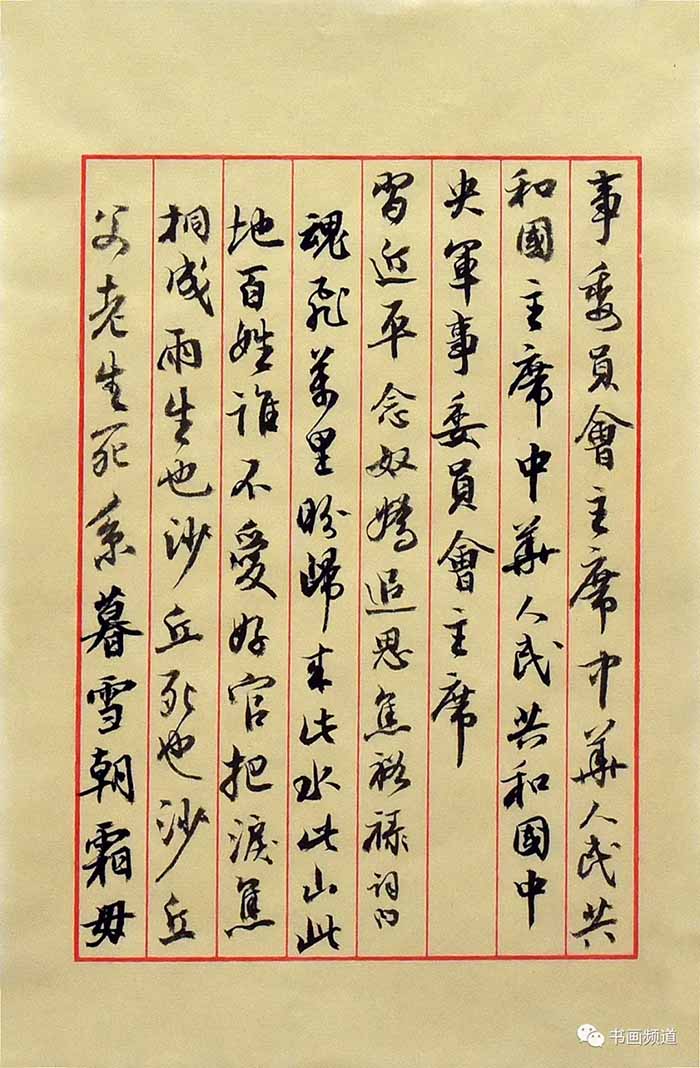 事委員會主席中華人民共
和國主席中華人民共和國中
央軍事委員會主席
習近平念奴嬌追思焦裕祿詞曰
魂飛萬里盼歸來此水此山此
地百姓誰不愛好官把淚焦
桐成雨生也沙丘死也沙丘
父老生死系暮雪朝霜毋
书画频道